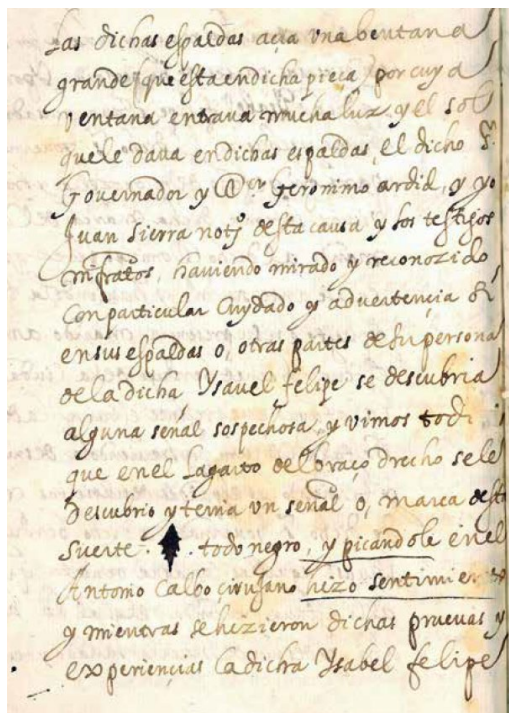 Las dichas espaldas açia una bentana
grande que esta en dicha pieça por cuya
ventana entrava mucha luz y el sol
que le dava en dichas espaldas, el dicho
Governador y Geronimo ardid, y yo
Juan Sierra not. desta causa y los testigos
infratos, haviendo mirado y reconozido
con particular cuydado y advertençia si
en sus espaldas o, otras partes de su persona
de la dicha Ysavel felipe se descubria
alguna señal sospechosa, y vimos todos
que en el lagarto del braço drecho se le
descubrio y tenia un señal o, marca desta
suerte . . todo negro, y picandole en el
Antonio Calbo çirujano hizo sentimiento
y mientras se hizieron dichas pruevas y
experiençias la dicha Ysabel felipe